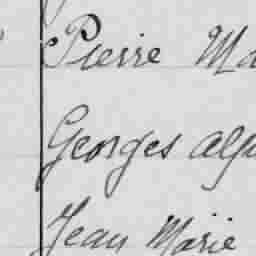 Pierre Ma
Georges Alp
Jean Marie